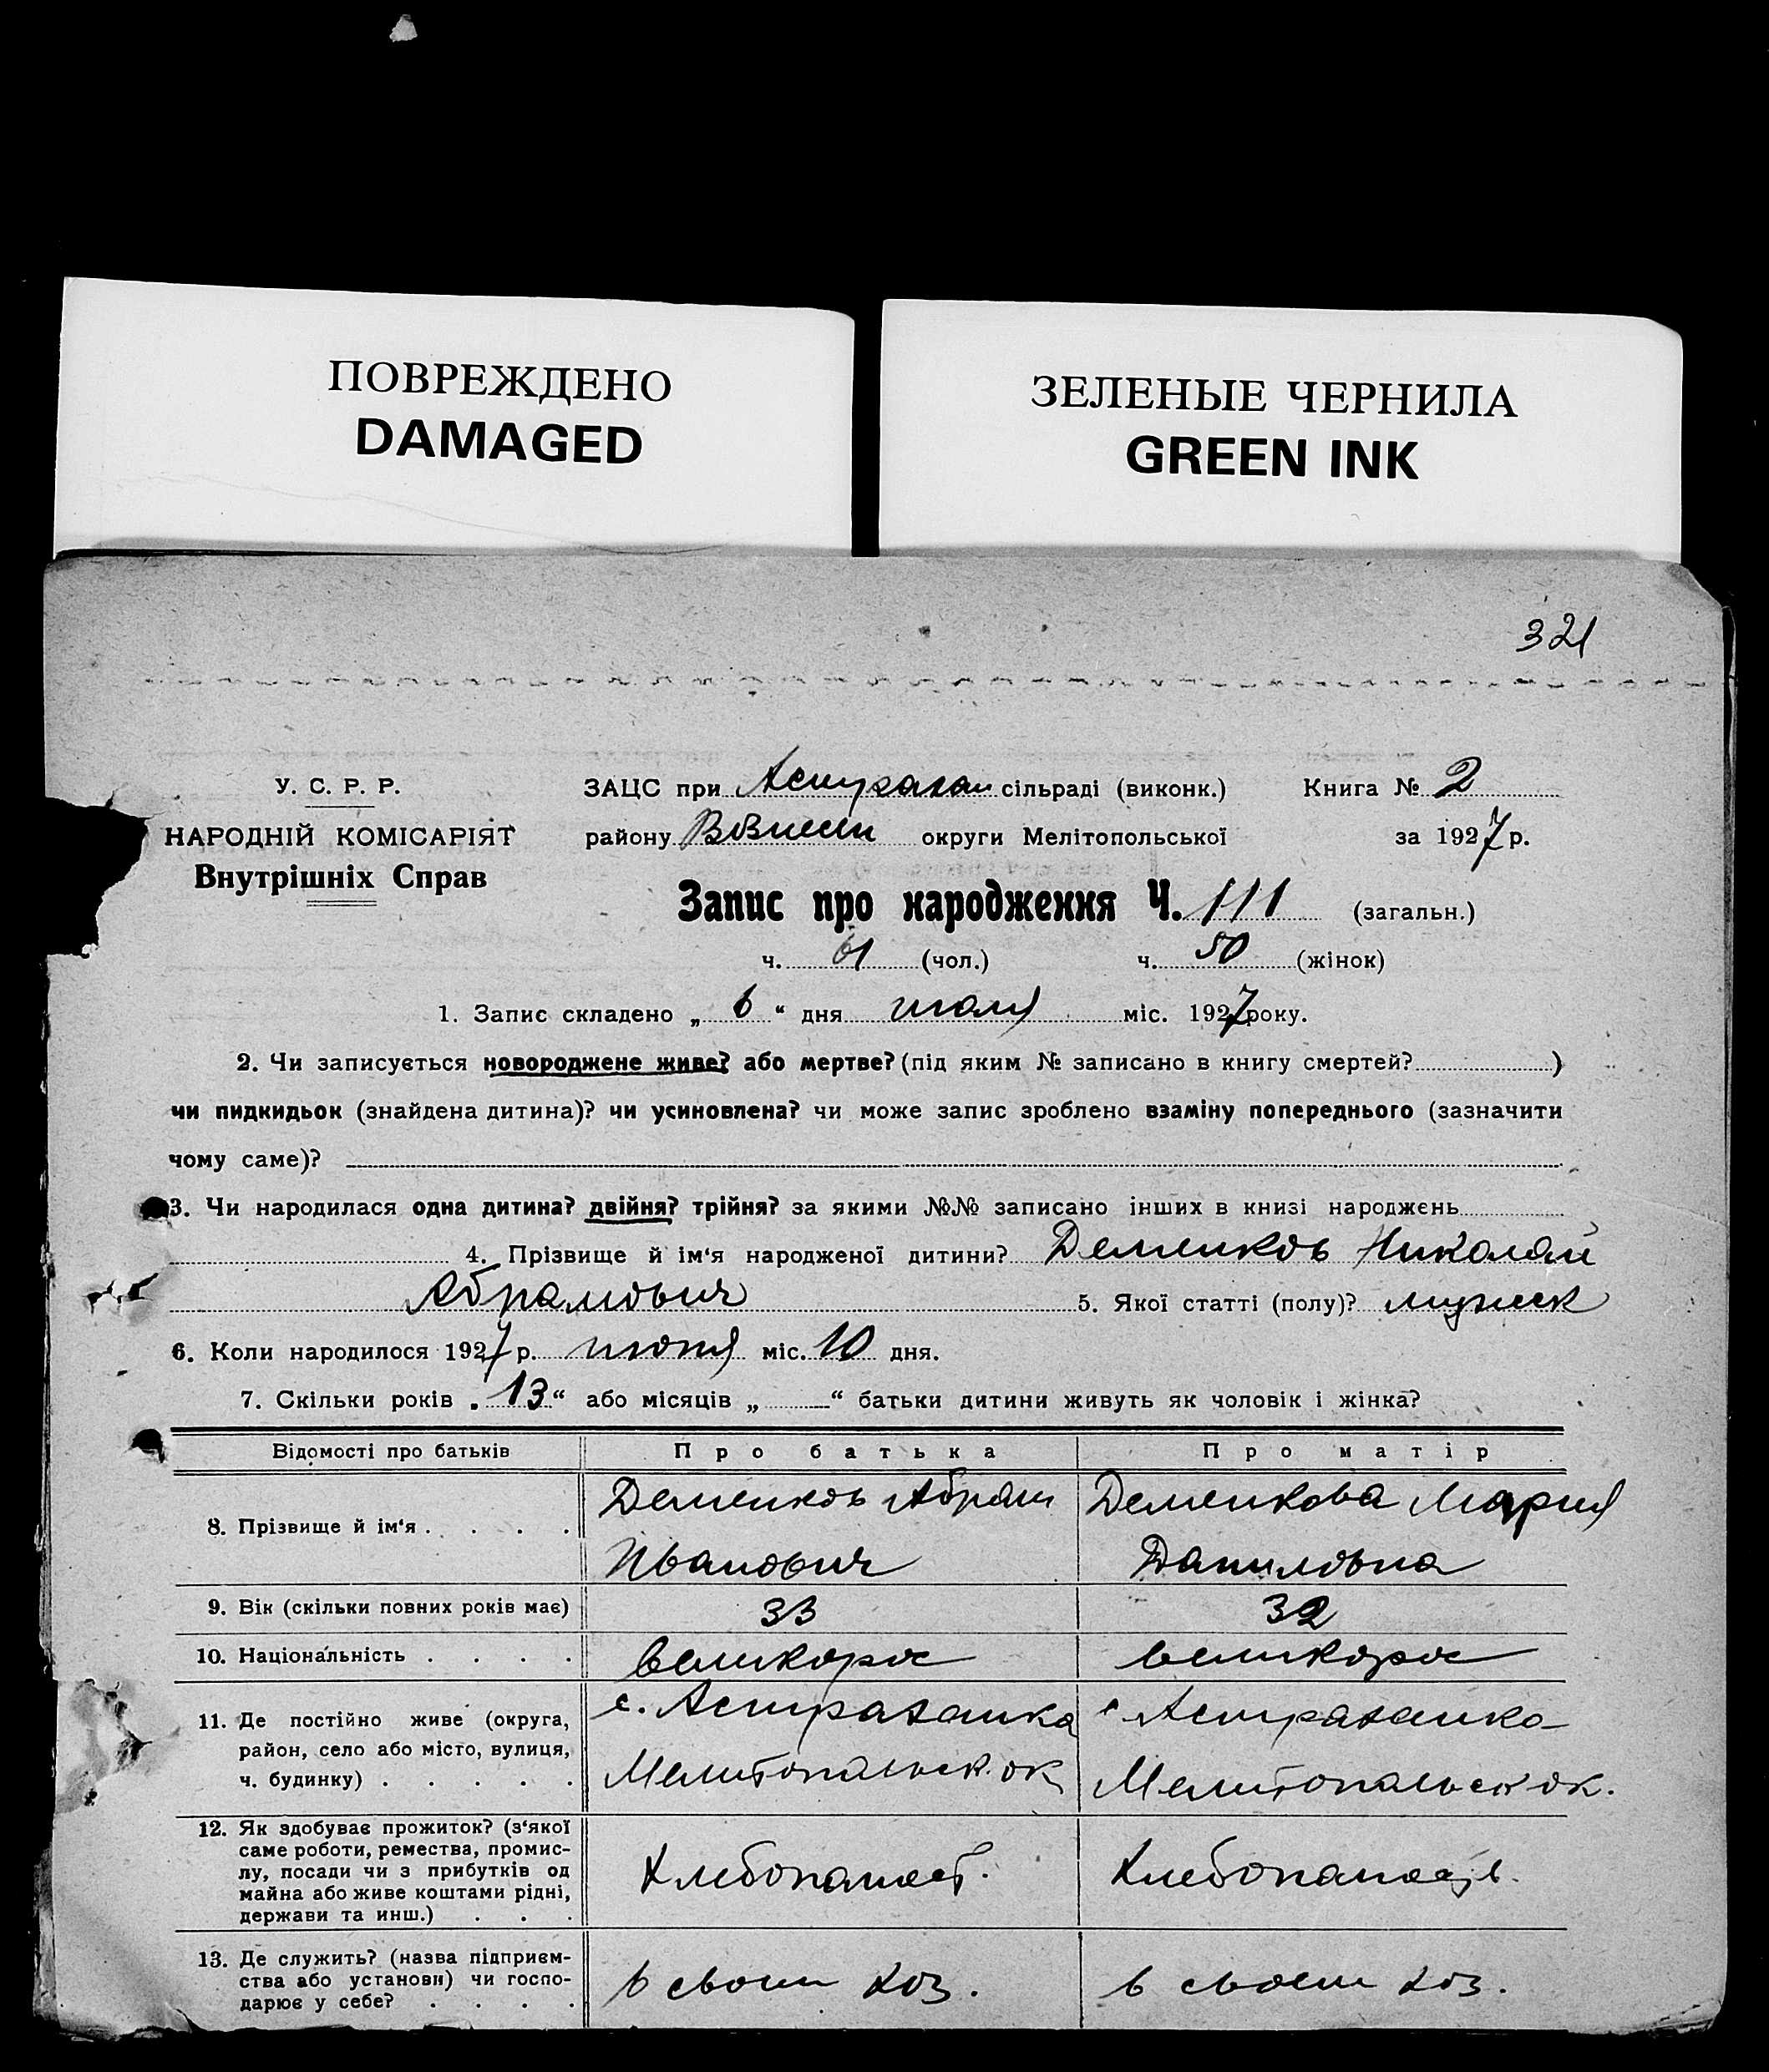 ПОВРЕЖДЕНО
DAMAGED
ЗЕЛЕНЫЕ ЧЕРНИЛА
GREEN INK
321
У. С. Р. Р.
НАРОДНІЙ КОМІСАРІЯТ
Внутрішніх Справ
ЗАЦС при Астрахан сільраді (виконк.) Книга № 2
району округи Мелітопольської за 1927 р.
Запис про народження Ч. 111 (загальн.)
ч. 61 (чол.) ч. 50 (жінок)
1. Запис складено „ 6 “ дня июля міс. 1927 року.
2. Чи записується новороджене живе? або мертве? (під яким № записано в книгу смертей? )
чи пидкидьок (знайдена дитина)? чи усиновлена? чи може запис зроблено взаміну попереднього (зазначити
чому саме)?
3. Чи народилася одна дитина? двійня? трійня? за якими №№ записано інших в книзі народжень
4. Прізвище й ім‘я народженої дитини? Деменков Николай
Абрамович 5. Якої статті (полу)? мужск
6. Коли народилося 1927 р. июня міс. 10 дня.
7. Скільки років „ 13 “ або місяців „ “ батьки дитини живуть як чоловік і жінка?
Відомості про батьків Про батька Про матір
8. Прізвище й ім‘я . . . . Деменков Абрам Деменкова Мария
Иванович Даниловна
9. Вік (скільки повних років має) 33 32
10. Національність . . . . великорос великорос
11. Де постійно живе (округа, с. Астраханка с Астраханка
район, село або місто, вулиця,
ч. будинку) . . . . . Мелитопольск. ок Мелитопольск ок.
12. Як здобуває прожиток? (з‘якої
саме роботи, ремества, промис-
лу, посади чи з прибутків од Хлебопашест. Хлебопашеств.
майна або живе коштами рідні,
держави та инш.) . . .
13. Де служить? (назва підприєм-
ства або установи) чи госпо- в своем хоз. в своем хоз.
дарює у себе? . . . .